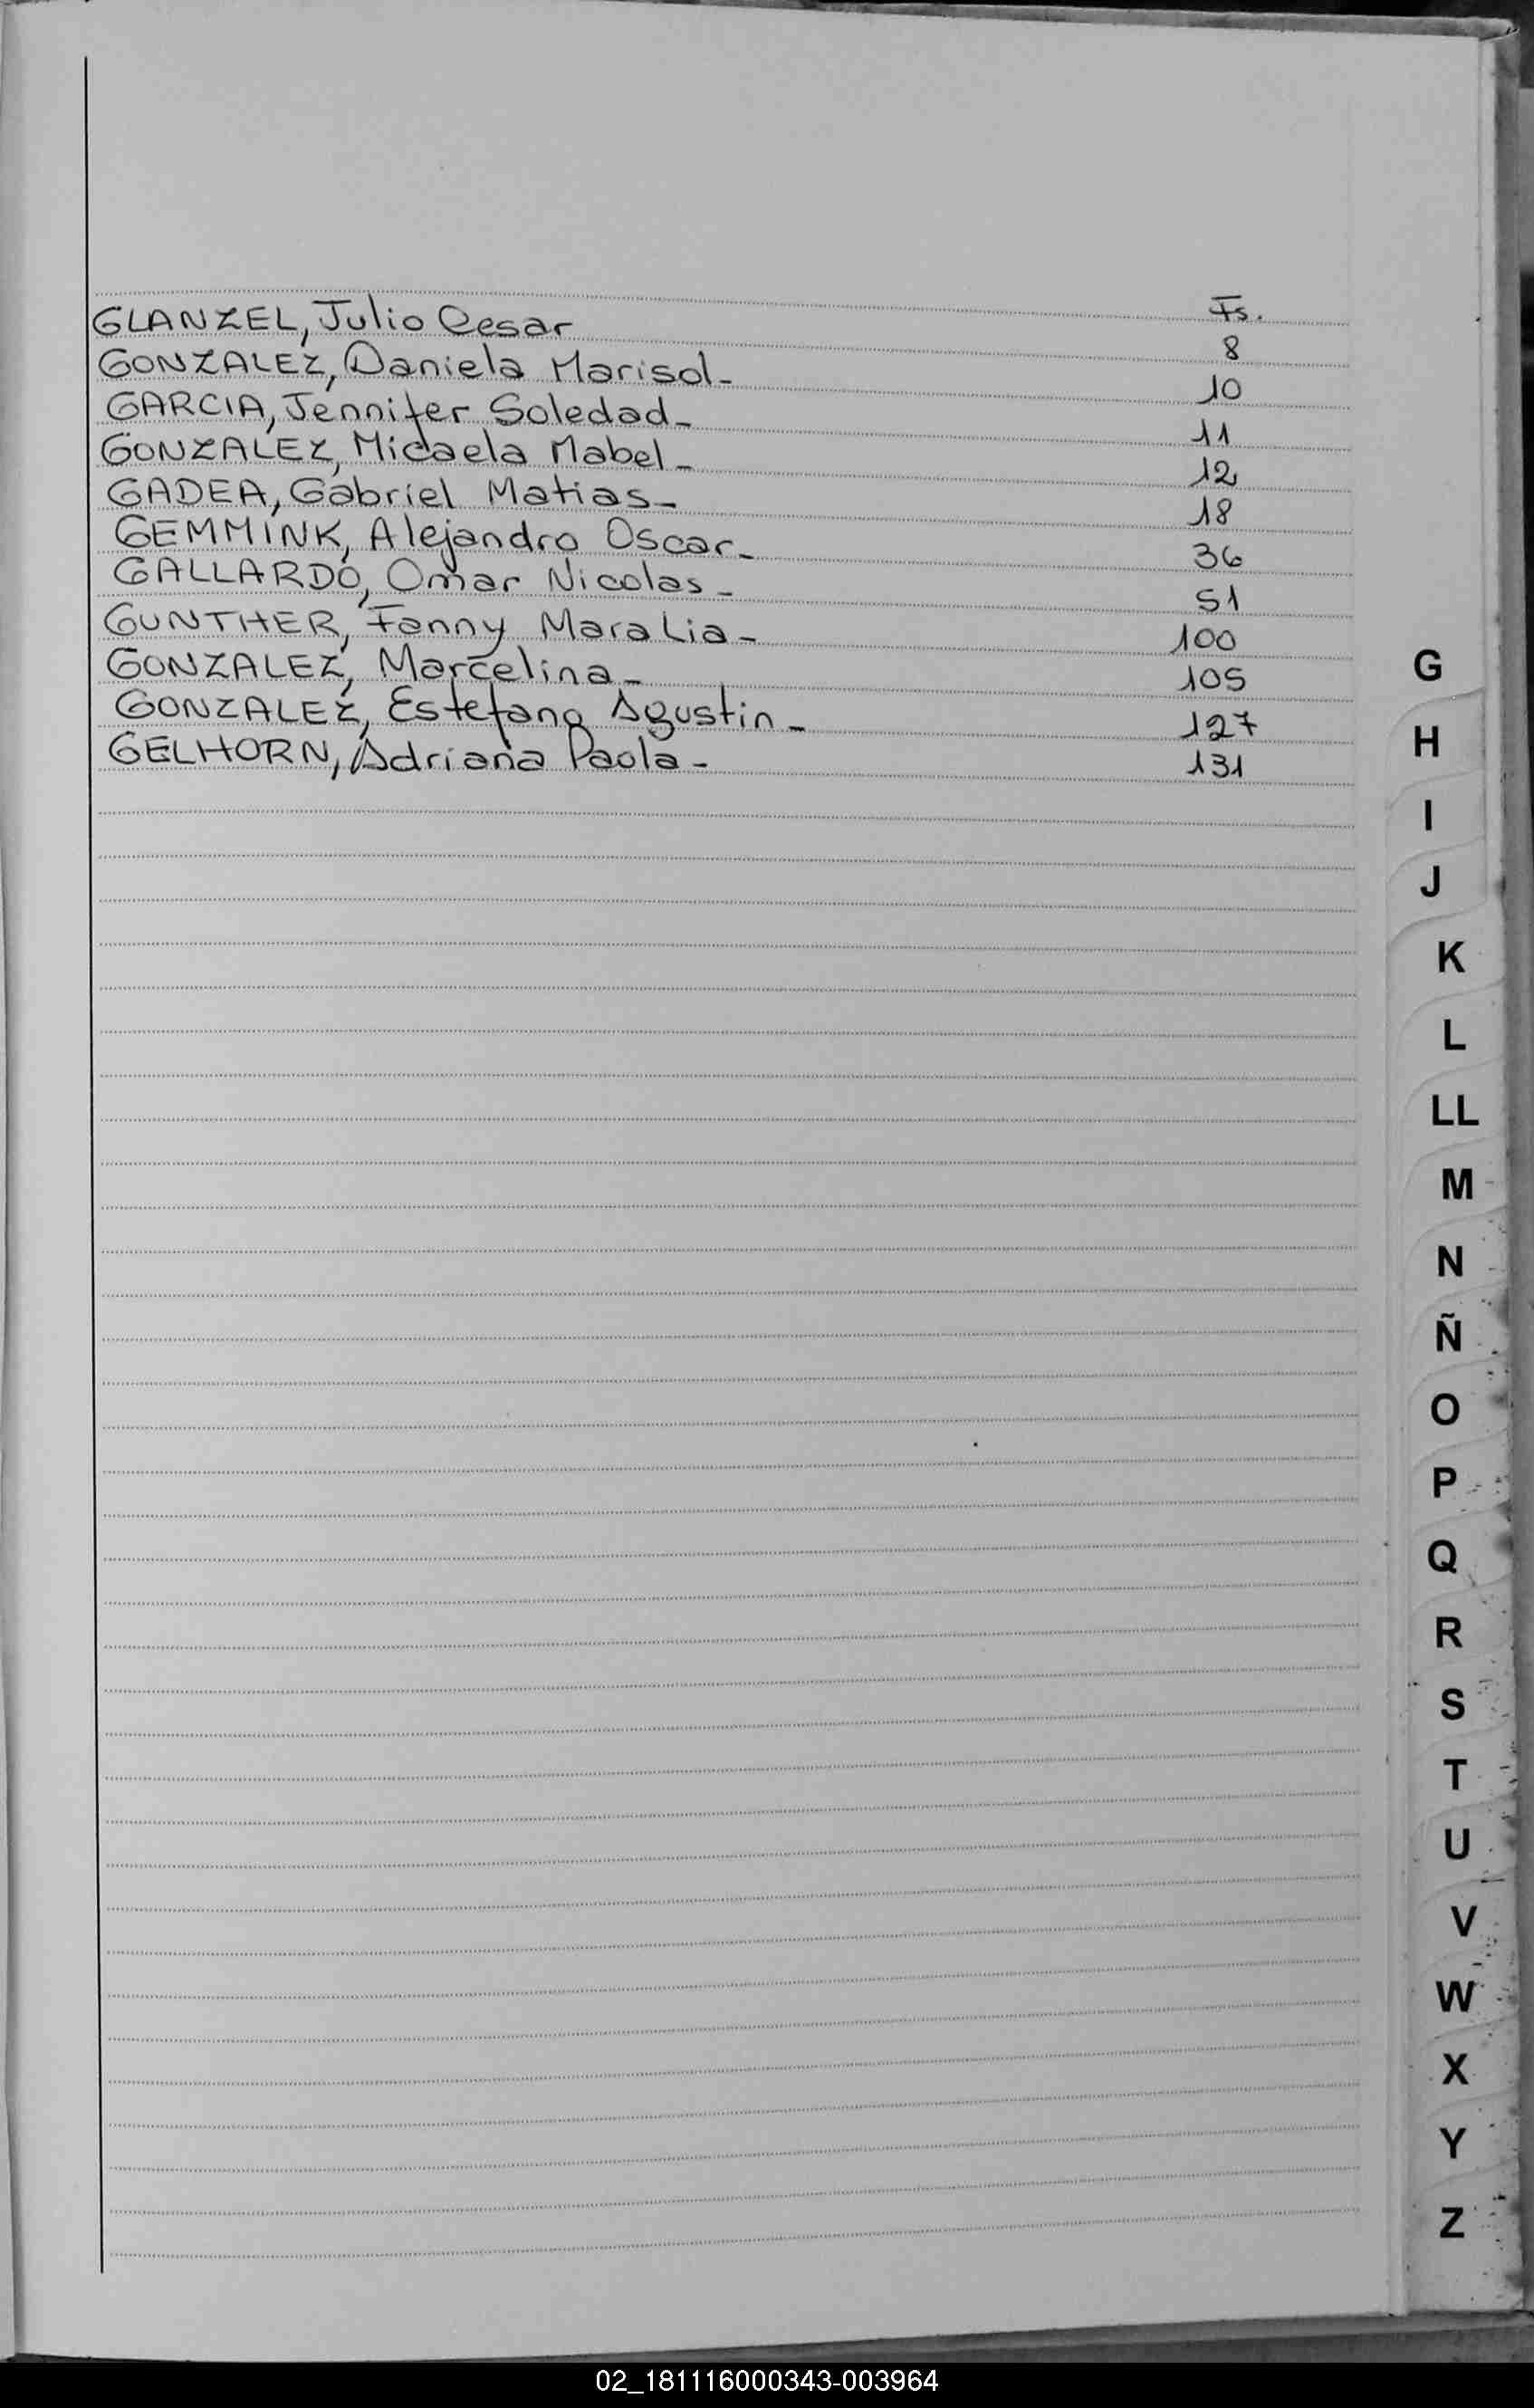 Fs.
GLANZEL, Julio Cesar 8
GONZALEZ, Daniela Marisol- 10
GARCIA, Jennifer Soledad- 11
GONZALEZ, Micaela Mabel- 12
GADEA, Gabriel Matias- 18
GEMMINK, Alejandro Oscar- 36
GALLARDO, Omar Nicolas- 51
GUNTHER, Fanny Mara Lia- 100
GONZALEZ, Marcelina- 105
GONZALEZ, Estefano Agustin- 127
GELHORN, Adriana Paola- 131
G
H
I
J
K
L
LL
M
N
Ñ
O
P
Q
R
S
T
U
V
W
X
Y
Z
02_181116000343-003964